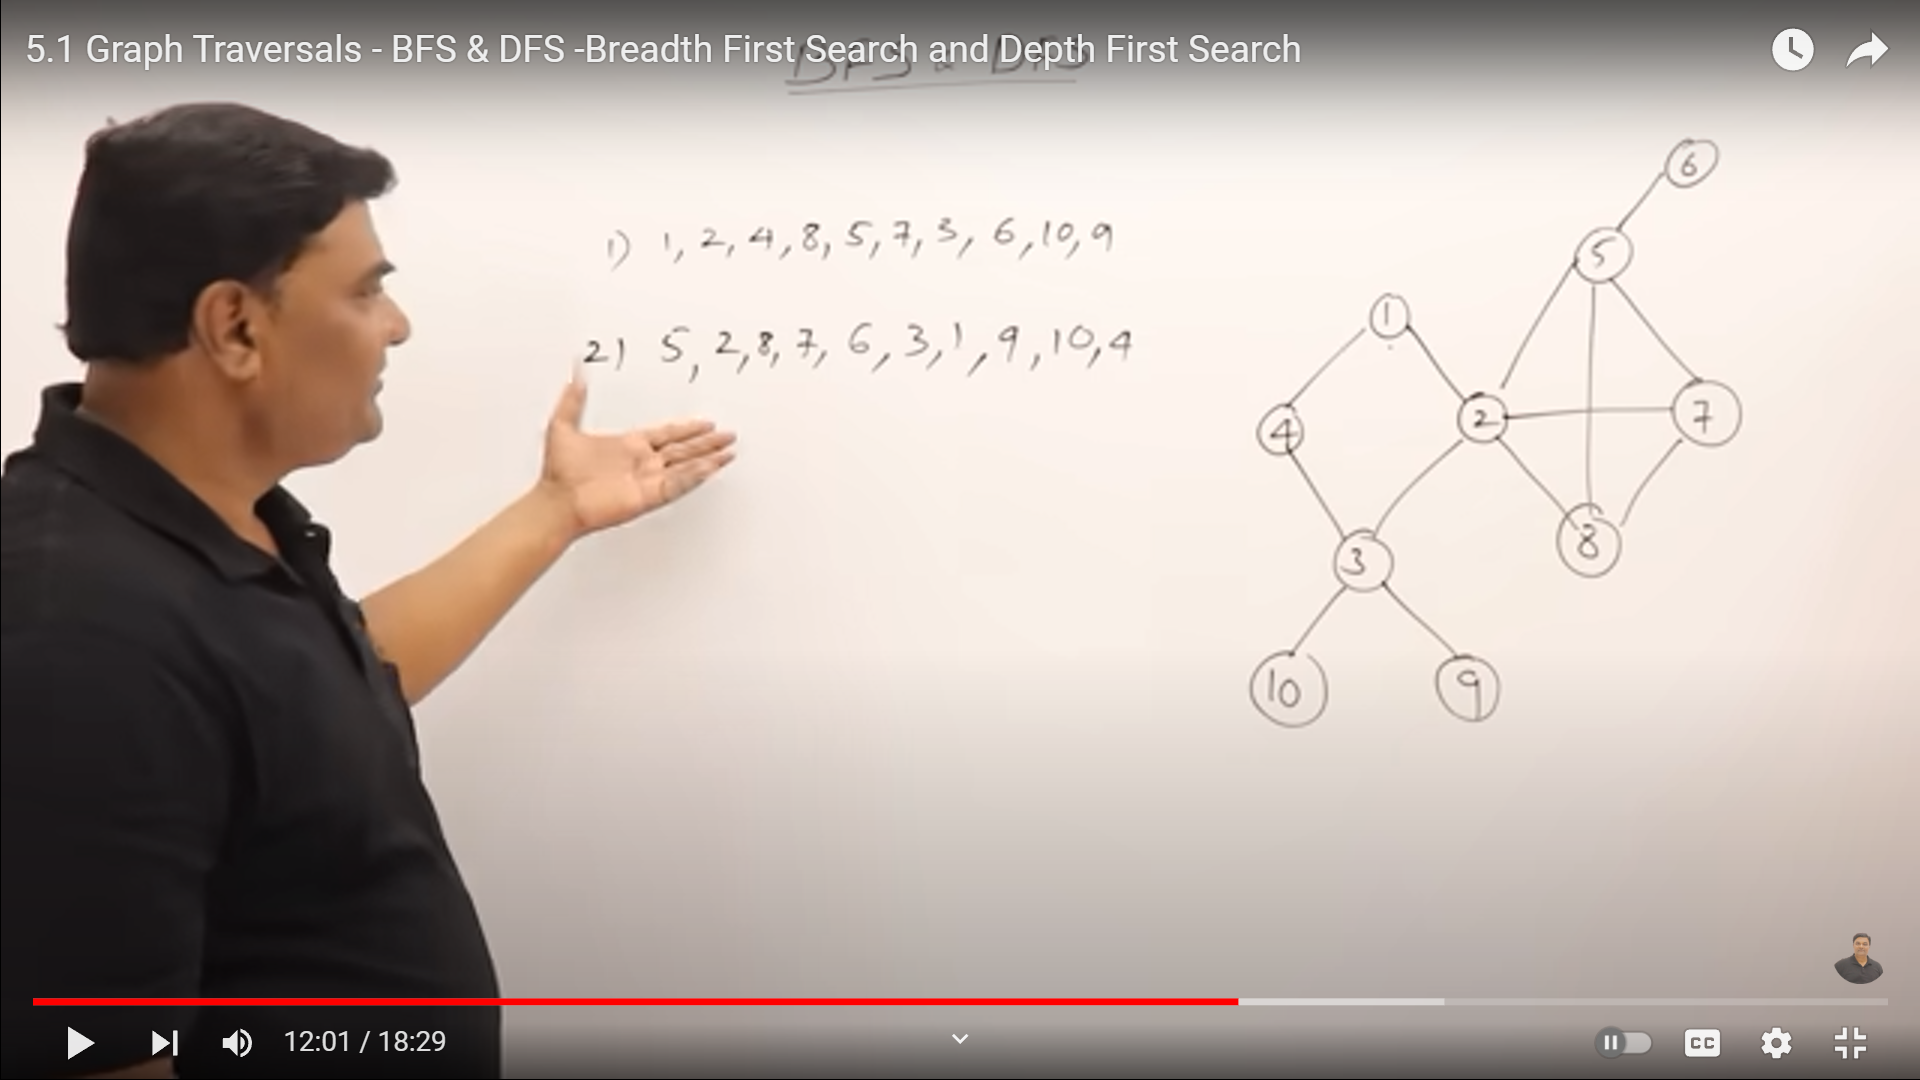 5.1 Graph Traversals - BFS & DFS -Breadth First Search and Depth First Search
BFS & DFS
1) 1, 2, 4, 8, 5, 7, 3, 6, 10, 9
2) 5, 2, 8, 7, 6, 3, 1, 9, 10, 4
6
5
1
2
7
4
8
3
10
9
12:01 / 18:29
CC